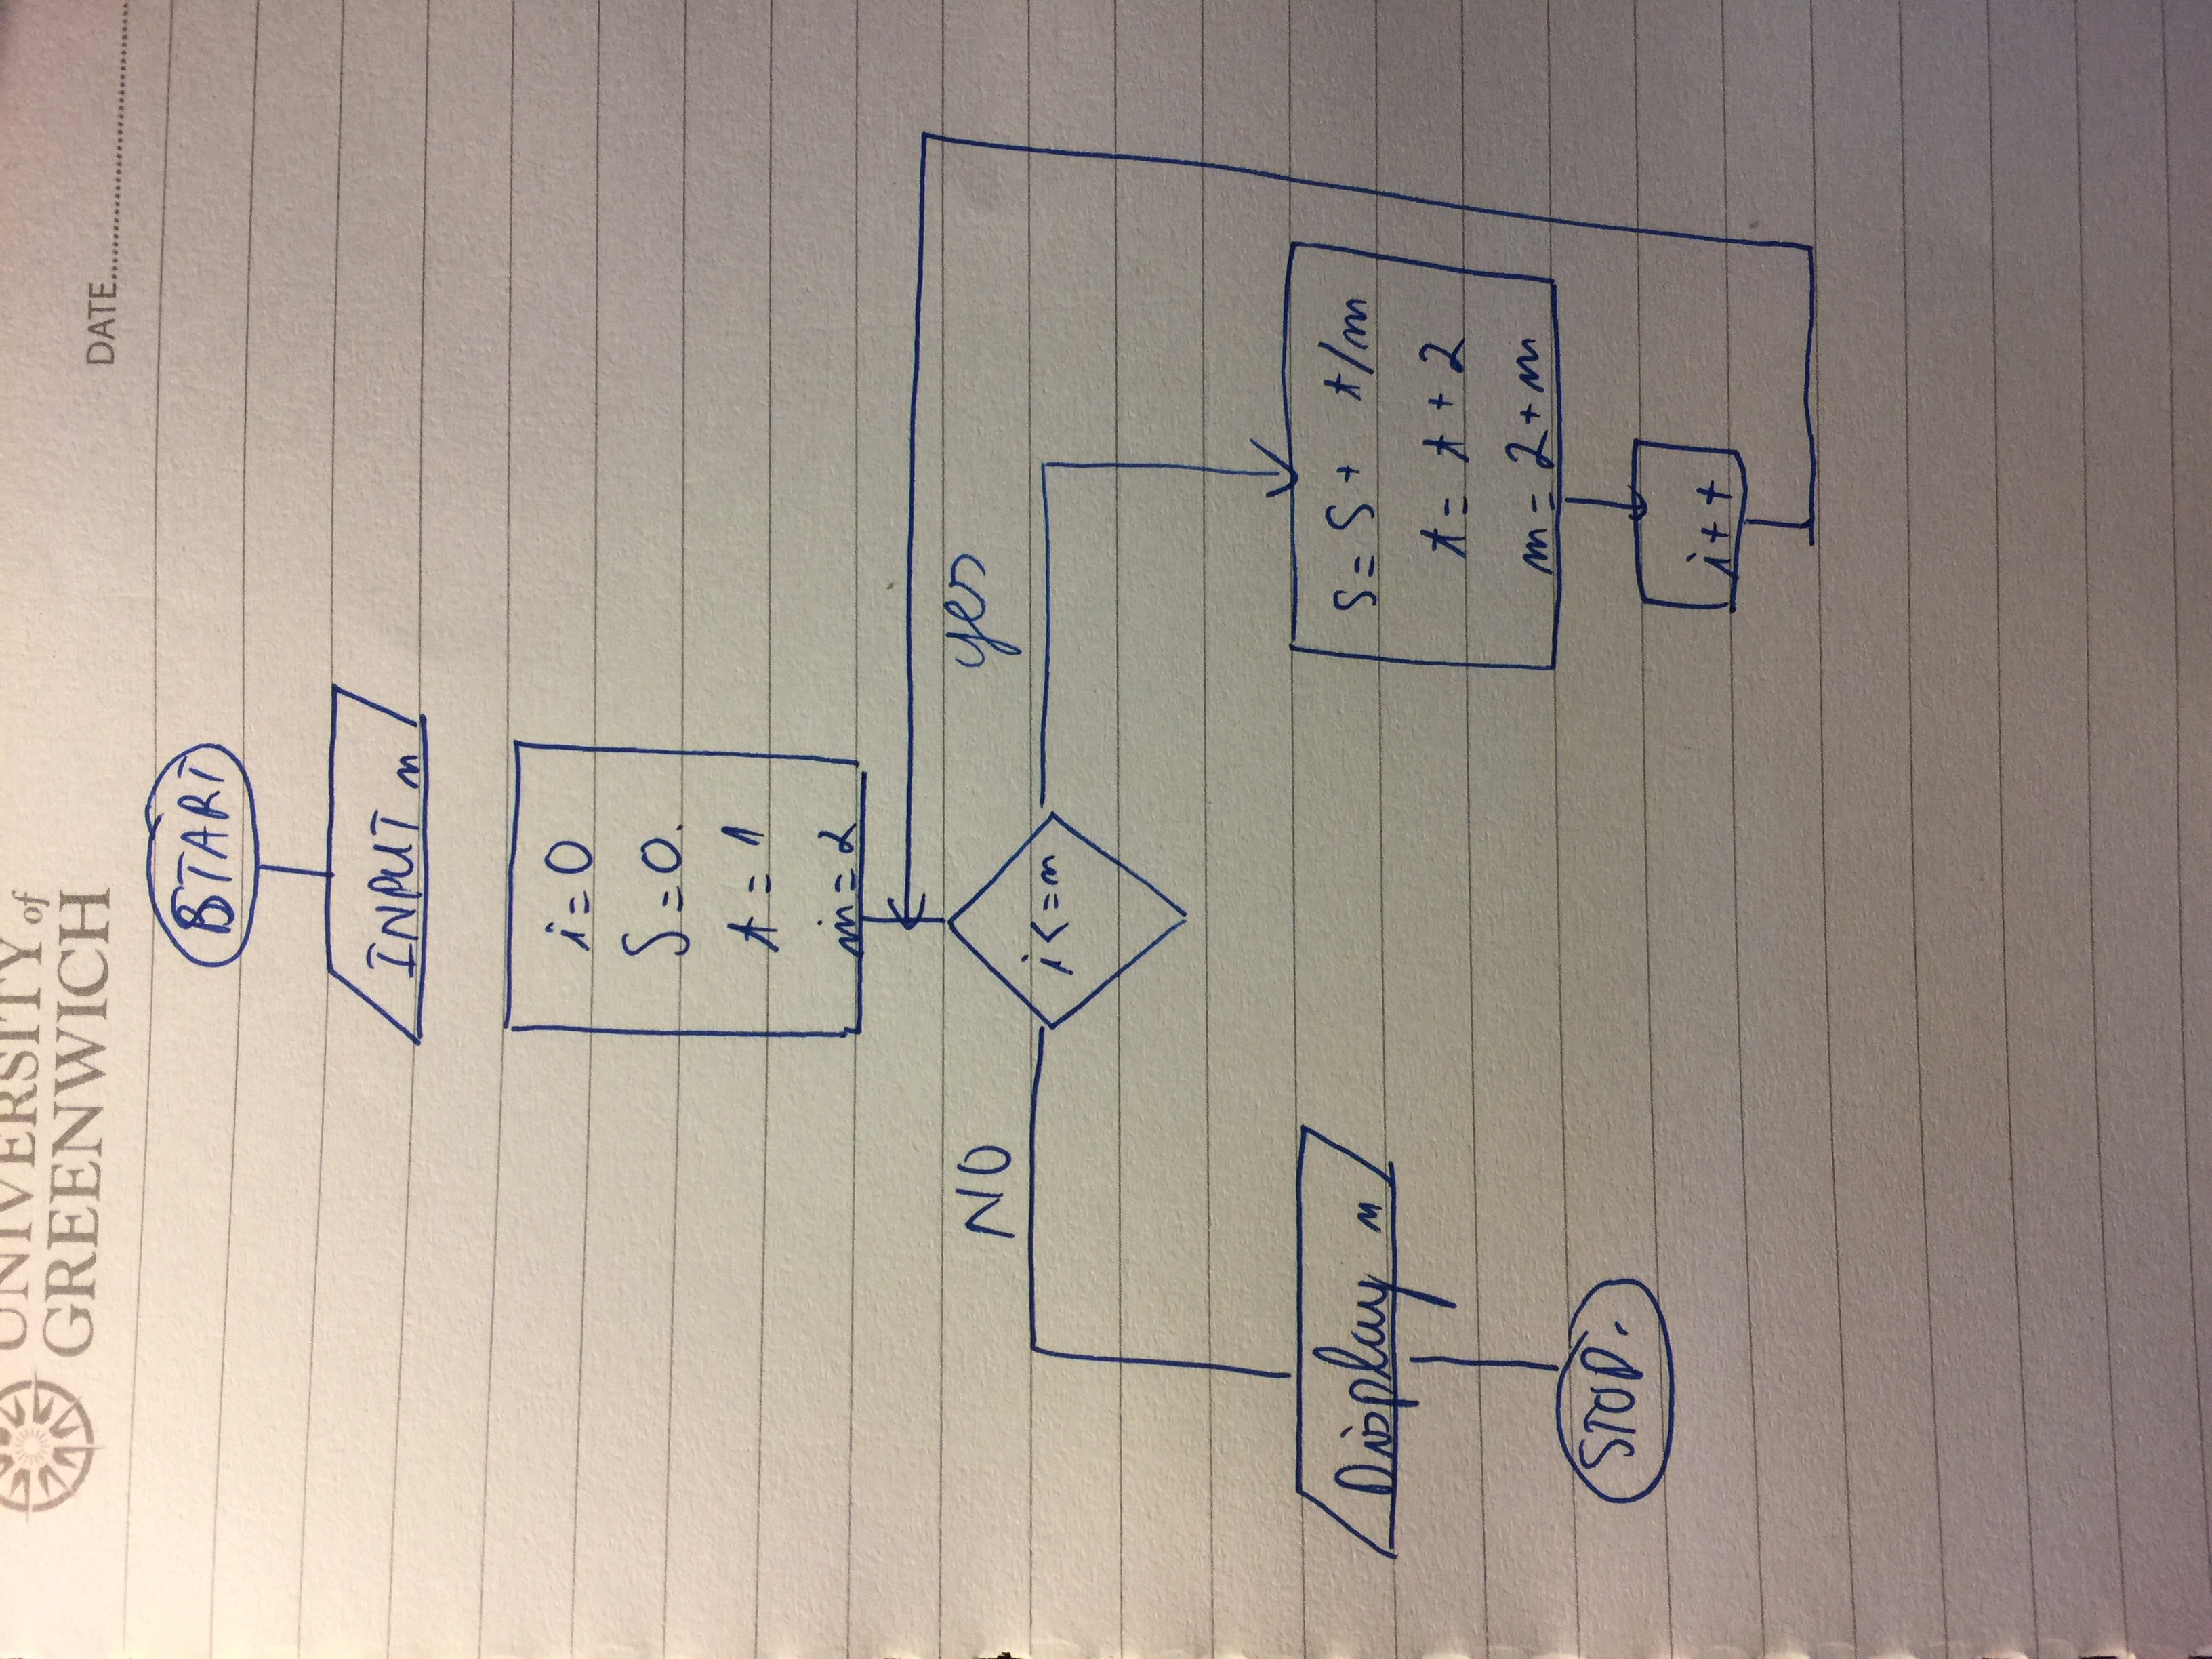 UNIVERSITY of
GREENWICH
DATE
START
INPUT n
i=0
S=0.
t=1
m=2
NO
yes
i<=n
Display n
S=S+ t/m
t=t+2
m=2+m
STOP.
i++